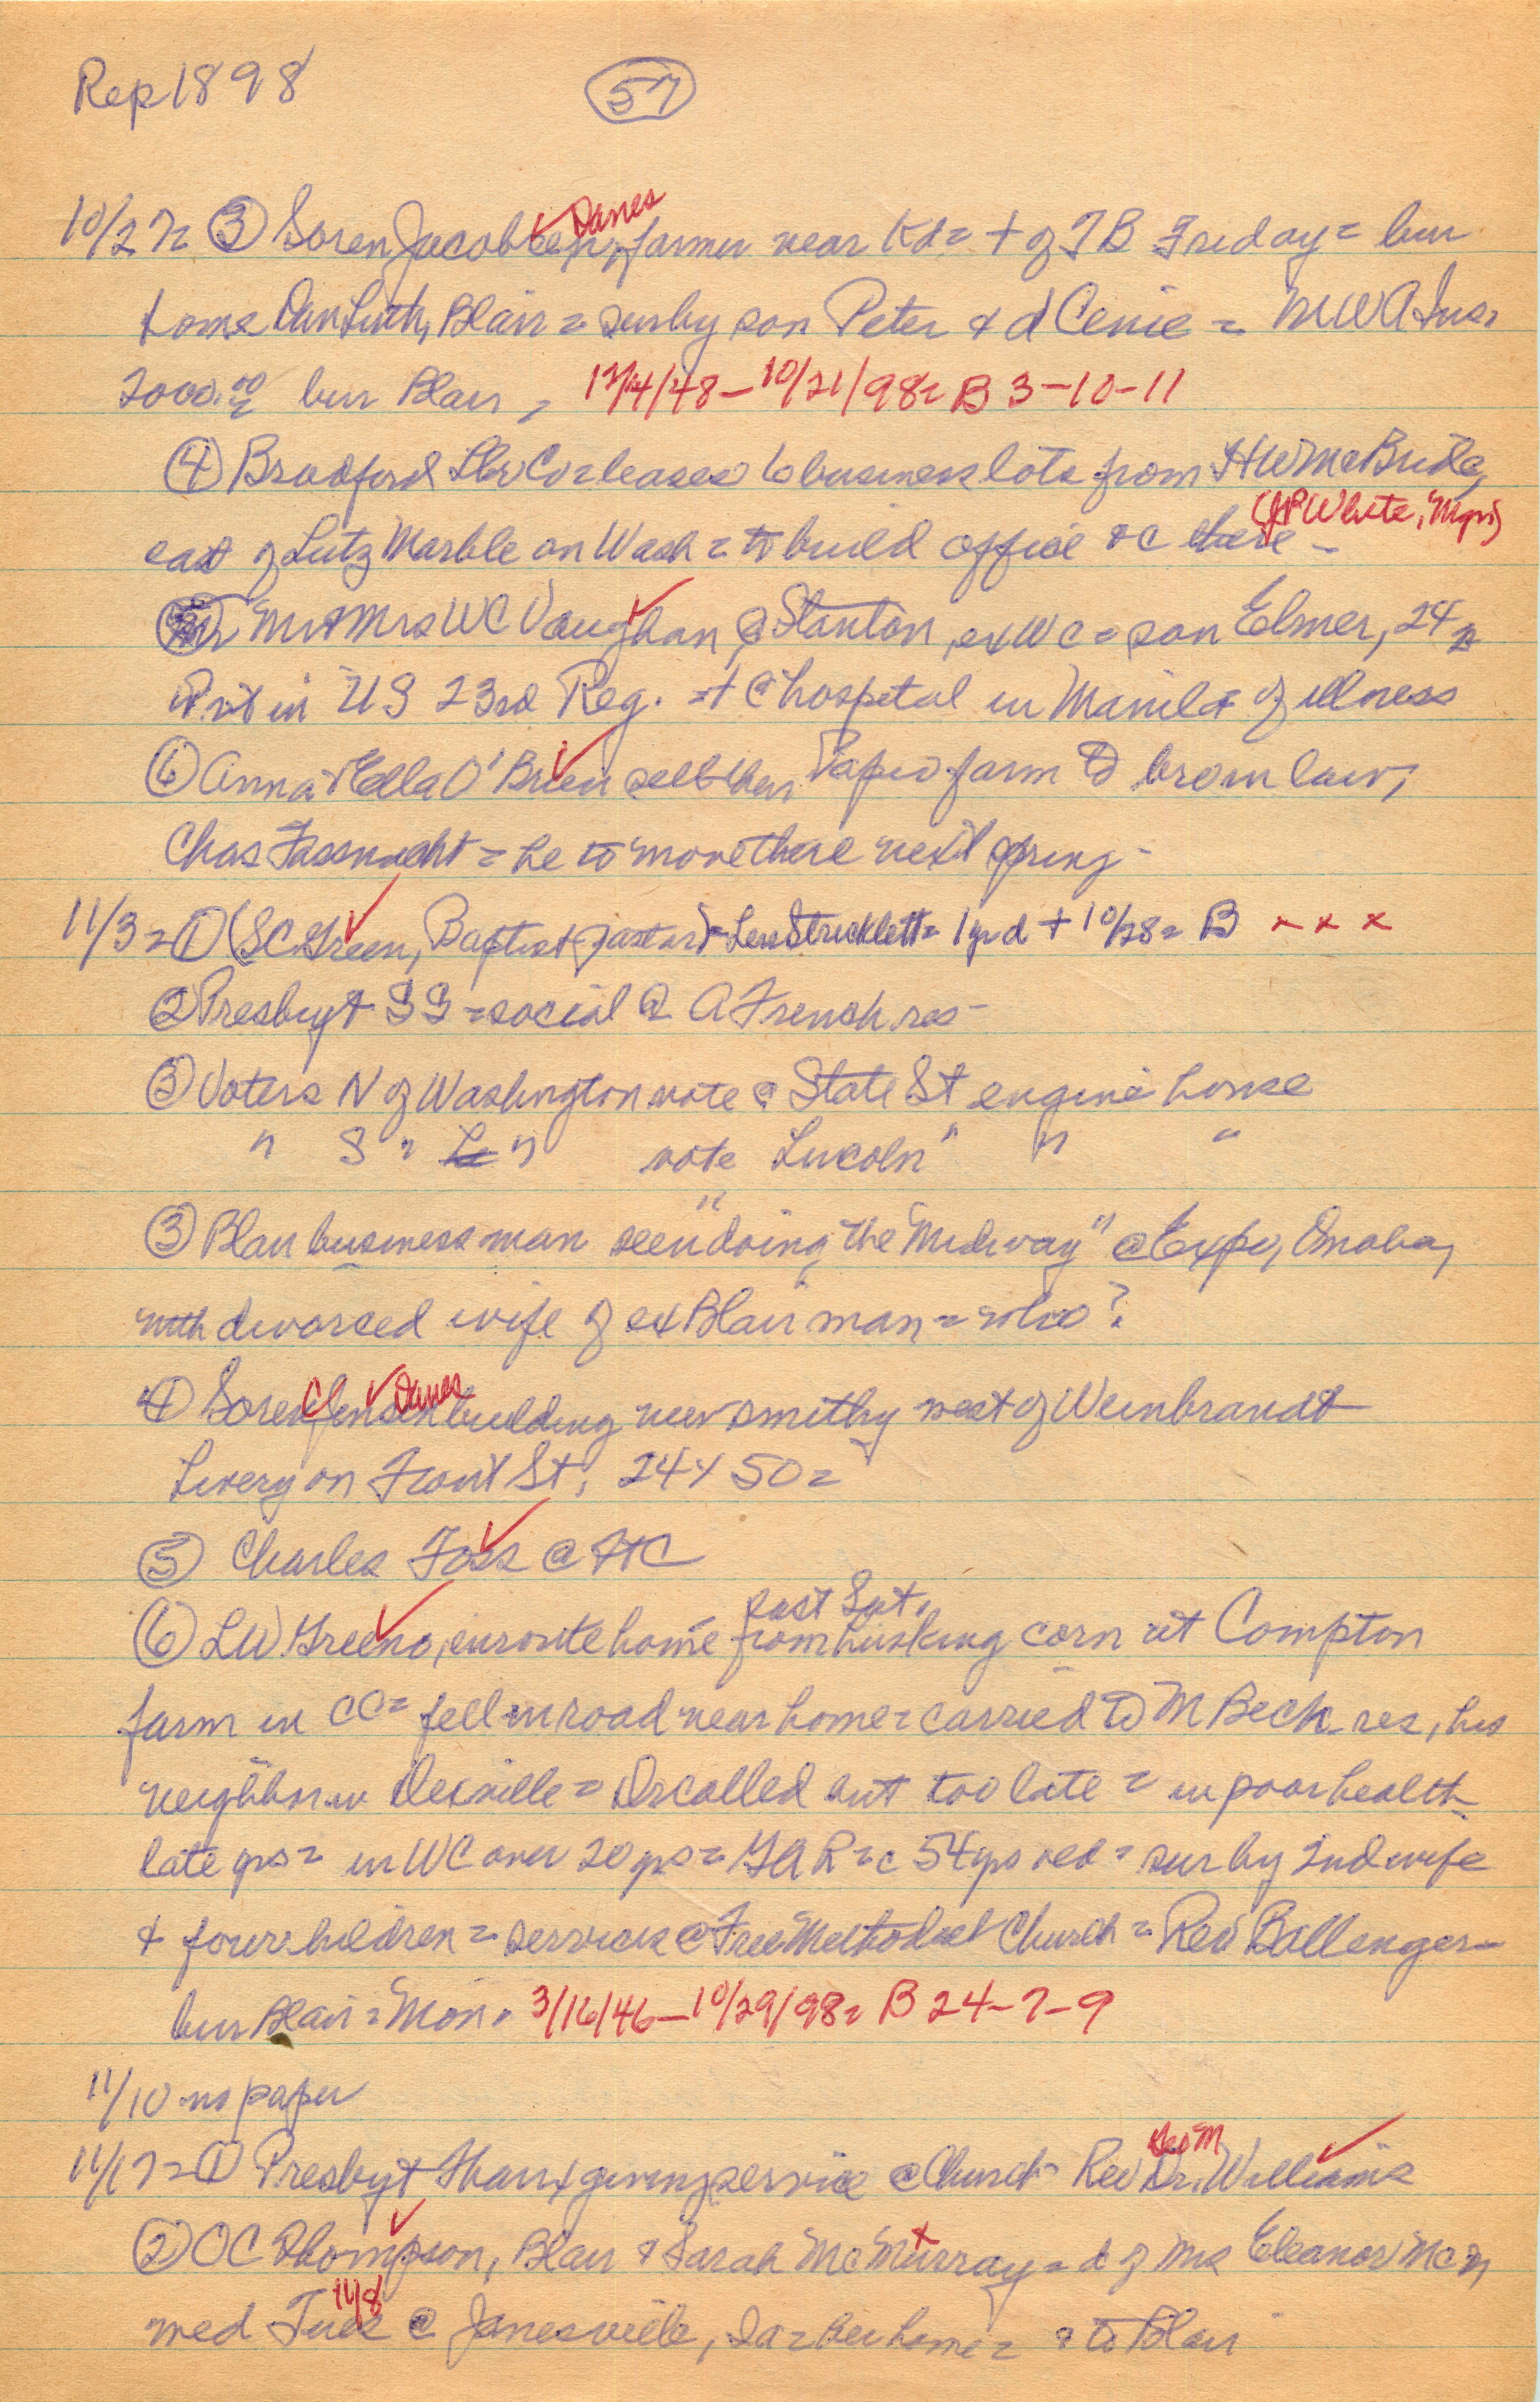 Rep 1898 (57)
10/27= ③ Soren Jacobsen, ✓ Danes farmer near Kd= + of TB Friday= bur
home Dan Luth, Blair= sur by son Peter & d Cenie = MWA Ins,
2000.00 bur Blair, 12/4/48-10/21/98= B 3-10-11
④ Bradford Lbr Co= leases 6 business lots from HW McBride,
(JP White, Mgr)
east of Lutz Marble on Wash= to build office &c there -
Mr & Mrs WC Vaughan, @ Stanton, ex WC= son Elmer, 24,
Pvt in US 23rd Reg. = + @ hospital in Manila of illness
⑥ Anna & Ella O'Brien sell their Papio farm to bro in law,
Chas Fassnacht = he to move there next spring -
11/3= ① (SC Green, Baptist pastor)= Len Stricklett= 1 yr d + 10/28= B x x x
② Presbyt SS= social @ A French res -
③ Voters N of Washington vote @ State St engine house
" S " " vote Lincoln " " "
③ Blair business man seen "doing the Midway" @ Expo, Omaha,
with divorced wife of ex Blair man= who?
④ Soren C Jensen ✓ Danes building new smithy west of Weinbrandt
Livery on Front St, 24 x 50=
⑤ Charles Foss @ FtC
past Sat,
⑥ LW Greeno, enroute home from husking corn at Compton
farm in CC= fell in road near home= carried to M Beck res, his
neighbor in Dexville= Dr called but too late = in poor health
late yrs= in WC over 20 yrs= GAR= c 54 yrs old= sur by 2nd wife
& four children= services @ Free Methodist Church= Rev Ballenger-
bur Blair= Mon. 3/16/46-10/29/98= B 24-7-9
11/10 no paper
11/17= ① Presbyt Thanxgiving service @ Church- Rev Dr. Williams
② OC Thompson, Blair & Sarah McMurray= d of Mrs Eleanor McM,
11/8
wed Tues @ Janesville, Ia= her home= = to Blair